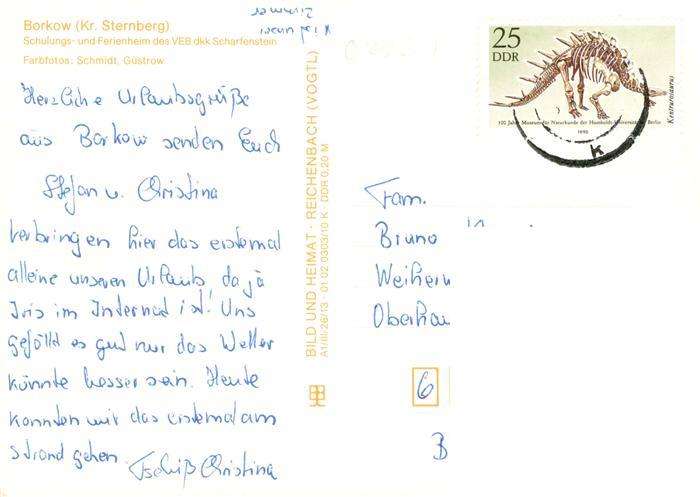 Borkow (Kr. Sternberg)
Schulungs- und Ferienheim des VEB dkk Scharfenstein
Farbfotos: Schmidt, Güstrow
Herzliche Urlaubsgrüße
aus Borkow senden Euch
Stefan u. Christina
Verbringen hier das erstemal
alleine unseren Urlaub, da ja
Iris im Internat ist! Uns
gefällt es gut nur das Wetter
könnte besser sein. Heute
konnten wir das erstemal am
Strand gehen. Tschüß Christina
Zimmer
BILD UND HEIMAT · REICHENBACH (VOGTL)
A1/III/26/13 · 01 02 0363/10 K · DDR 0,20 M
25
DDR
Kentrurosaurus
100 Jahre Museum für Naturkunde der Humboldt-Universität zu Berlin
1990
K
Fam.
Bruno
Weihern
Oberhau
6
B